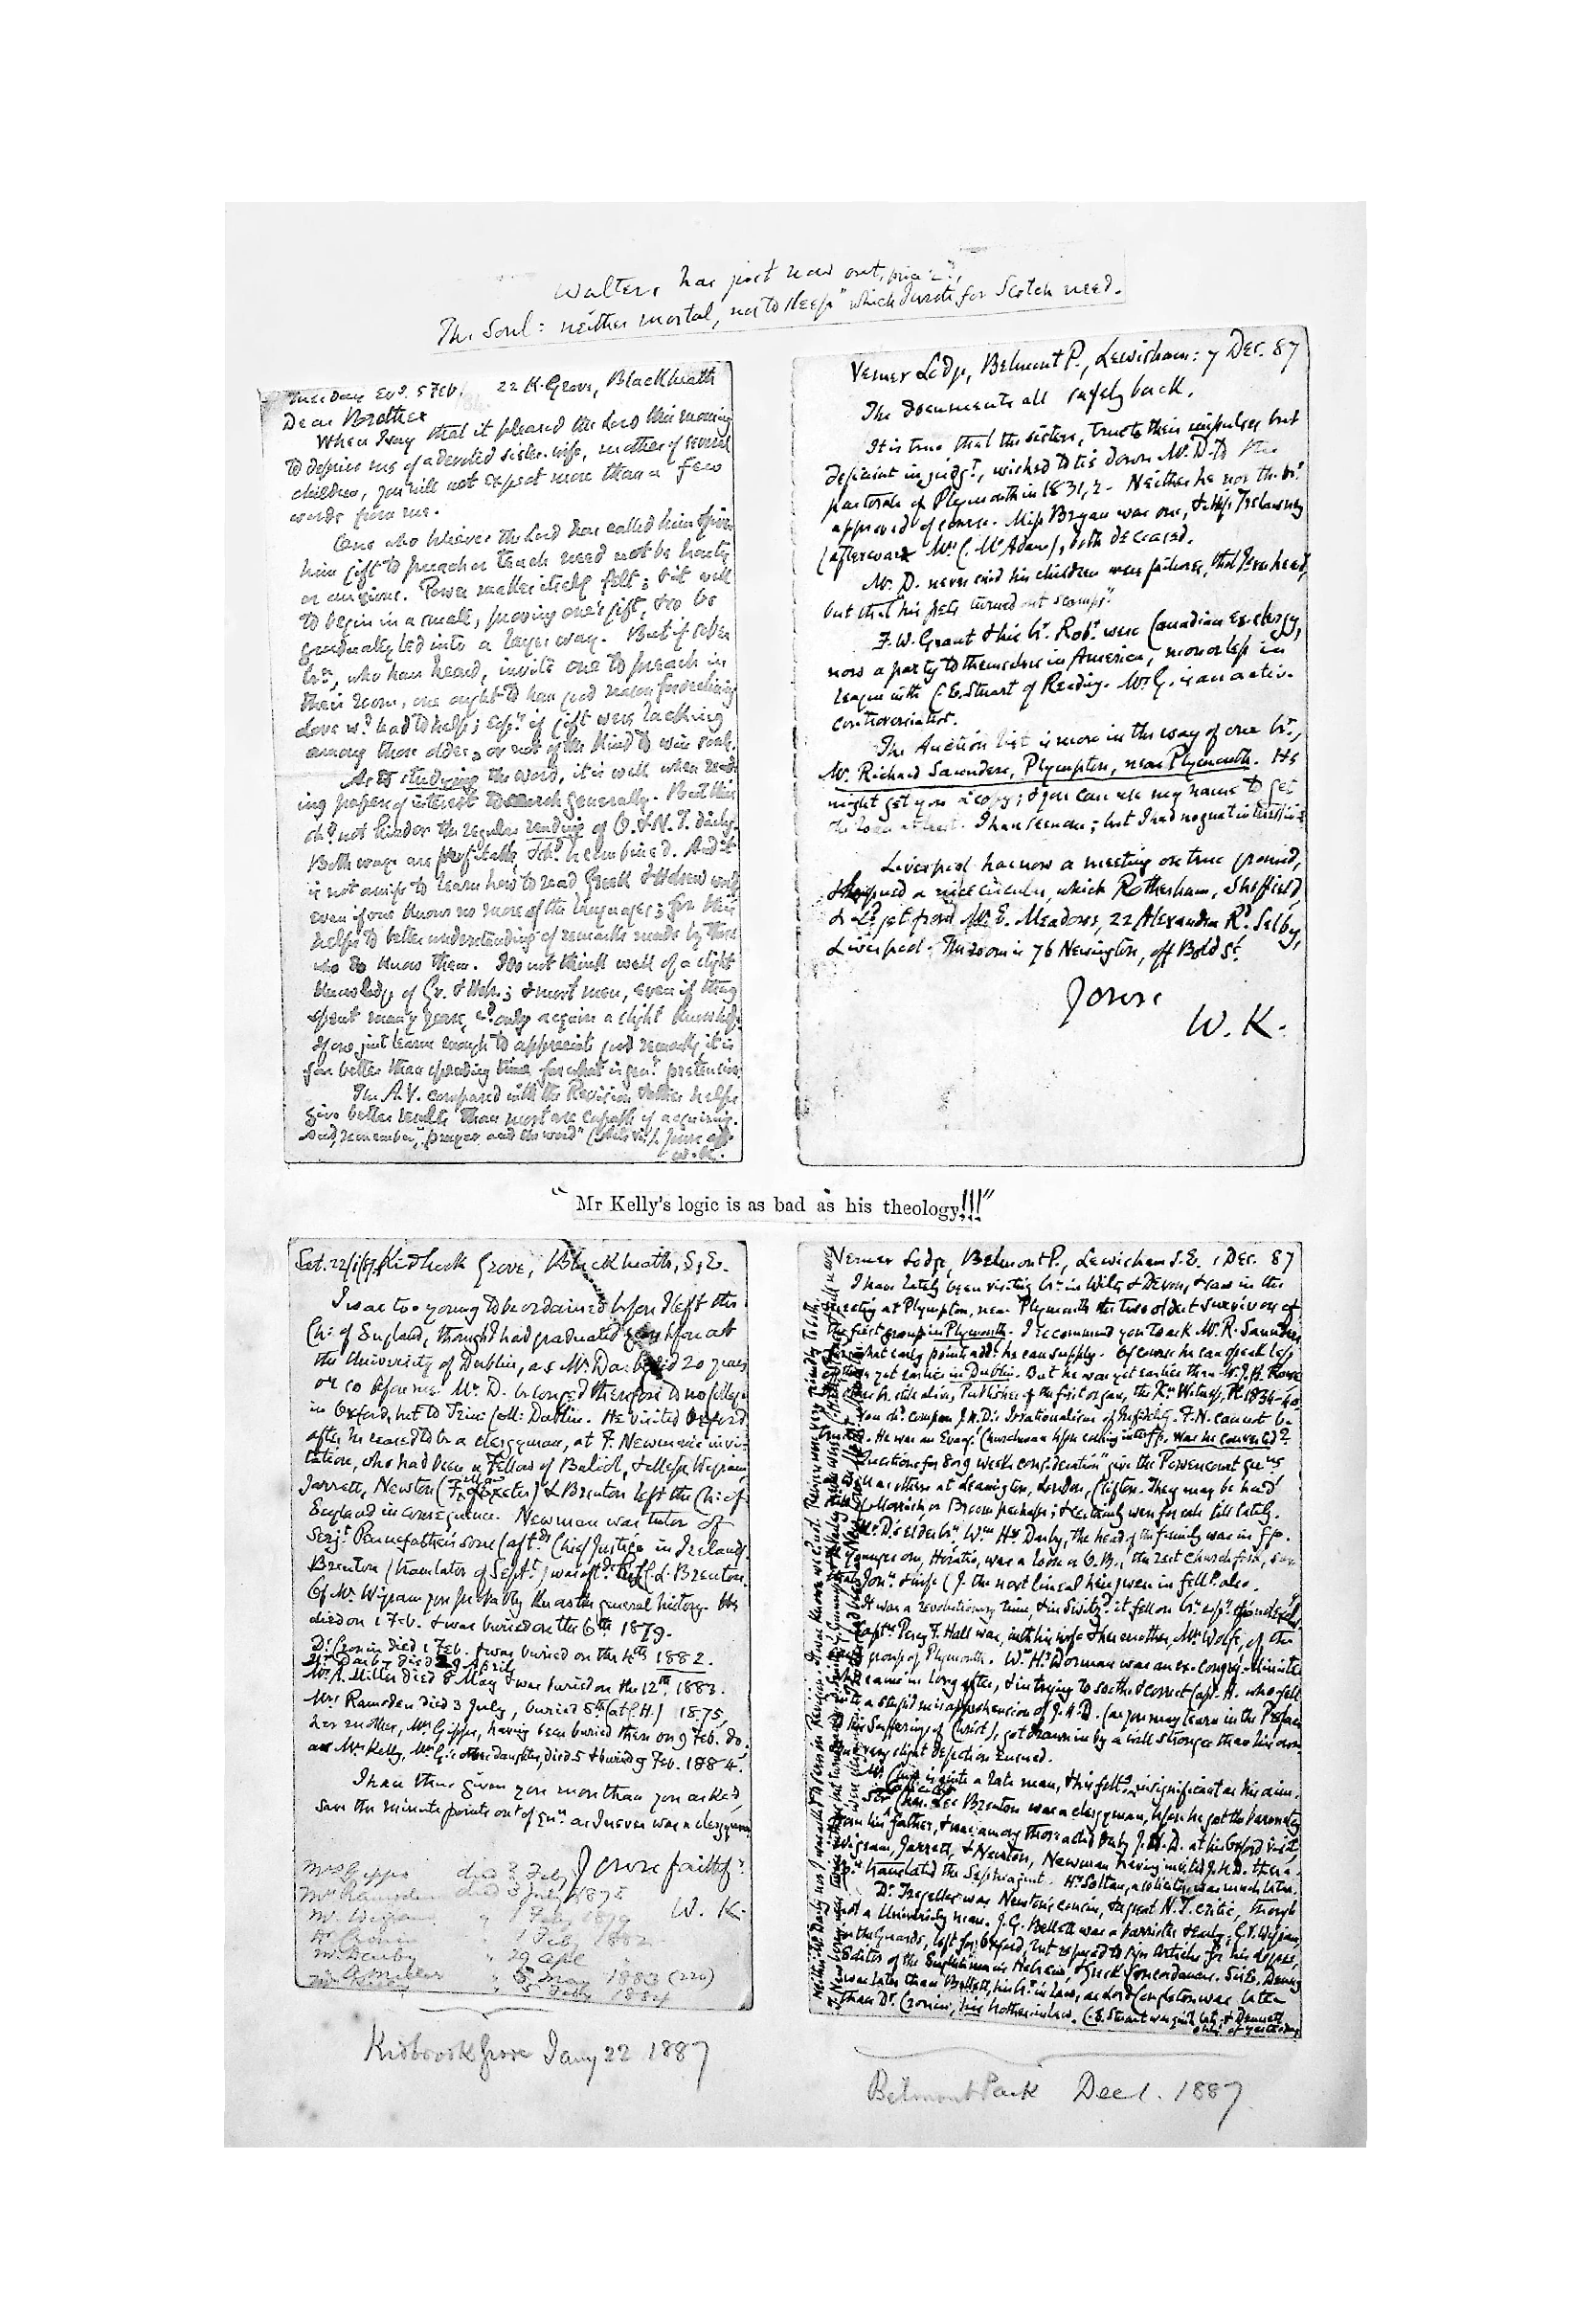 Walters has just now out, price 2d,
The Soul: neither mortal, nor to sleep" which I wrote for Scotch need.
Tuesday Evg. 5 Feb. 22 K. Grove, Blackheath
Dear Brother
When I say that it pleased the Lord this morning
to deprive me of a devoted sister-wife, mother of several
children, you will not expect more than a few
words from me.
One who believes the Lord has called him & given
him gift to preach or teach need not be hasty
or anxious. Power makes itself felt; & it will
to begin in a small, proving one's gift, & so be
gradually led into a larger way. But if other
brn, who have heard, invite one to preach in
their room, one ought to have good reason for declining
Love wd lead to help; espy if gift were lacking
among those older, or not of the kind to win souls.
As to studying the word, it is well when read-
ing passages of interest to search generally. But this
shd not hinder the regular reading of O. & N. T. daily.
Both ways are profitable, & shd be combined. And it
is not amiss to learn how to read Greek & Hebrew words
even if one knows no more of the languages; for this
helps to better understanding of remarks made by those
who do know them. I do not think well of a slight
knowledge of Gr. & Heb.; & most men, even if they
spent many years, wd only acquire a slight knowledge.
If one just learns enough to appreciate good remarks, it is
far better than spending time for what is genl pretension.
The A.V. compared with the Revision & other helps
give better results than most are capable of acquiring.
And, remember, "prayer and the word" Yours aff.
W.K.
Verner Lodge, Belmont P., Lewisham: 7 Dec. 87
The documents all safely back.
It is true that the sisters, true to their impulses but
deficient in judgt, wished to tie down Mr. D. to the
pastorate of Plymouth in 1831,2. Neither he nor the brn
approved of course. Miss Bryan was one, & Miss Trelawny
(afterwards Mrs C. McAdam), both deceased.
Mr. D. never said his children were failures, that I ever heard,
but that "his pets turned out scamps".
F. W. Grant & his br. Robt were Canadian ex-clergy,
now a party to themselves in America, more or less in
league with C. E. Stuart of Reading. Mr G. is an active
controversialist.
The Auction list is more in the way of one br.,
Mr. Richard Saunders, Plympton, near Plymouth. He
might get you a copy; & you can use my name to get
the loan at least. I have seen one; but I had no great interest in it.
Liverpool has now a meeting on true ground,
& signed a nice circular, which Rotherham, Sheffield,
& Ld get from Mr. E. Meadows, 22 Alexandra Rd. Selby,
Liverpool. The room is 76 Newington, off Bold St.
Yours
W. K.
"Mr Kelly's logic is as bad as his theology!!!"
Sat. 22/1/87. Kidbrook Grove, Blackheath, S.E.
I was too young to be ordained before I left the
Ch: of England, though I had graduated before at
the University of Dublin, as Mr Darby did 20 years
or so before me. Mr. D. belonged therefore to no college
in Oxford, but to Trin: Coll: Dublin. He visited Oxford
after he ceased to be a clergyman, at F. Newman's invi-
tation, who had been a Fellow of Balliol, & Messrs Wigram,
Jarrett, Newton (Fellow of Exeter) & Brenton left the Ch: of
England in consequence. Newman was tutor of
Serjt. Pennefather's sons (aftds Chief Justice in Ireland).
Brenton (translator of Sept.) was aftds Sir C. L. Brenton.
Of Mr. Wigram you probably know the general history. He
died on 1 Feb. & was buried on the 6th 1879.
Dr. Cronin died 1 Feb. & was buried on the 4th 1882.
Mr. Darby died 29 April
Mr. A. Miller died 8 May & was buried on the 12th, 1883.
Mrs Ramsden died 3 July, buried 8th (at C.H.) 1875,
her mother, Mrs Gipps, having been buried there on 9 Feb. do.
as Mrs Kelly, Mrs G.'s other daughter, died 5 & buried 9 Feb. 1884.
I have thus given you more than you asked,
save the minute points out of qun. as I never was a clergyman
Yours faithfy
W. K.
Mrs Gipps died ? Feb
Mrs Ramsden died 3 July 1875
Mr. Wigram " 1 Feby 1879
Dr Cronin " 1 Feby 1882
Mr. Darby " 29 Apl
A Miller " 8 May 1883
" 5 Feby 1884
Kidbrook Grove Jany 22 1887
Verner Lodge, Belmont P., Lewisham S.E. 1 Dec. 87
I have lately been visiting brn in Wilts & Devon, & saw in the
meeting at Plympton, near Plymouth the two oldest survivors of
the first group in Plymouth. I recommend you to ask Mr. R. Saunders
for what early points addl he can supply. Of course he can speak less
of those yet earlier in Dublin. But he was yet earlier than W. J. H. Rowe
Publisher of the first organ, the Xn Witness, Pl. 1834-40.
You shd compare J.N.D.'s Irrationalism of Infidelity. F. N. cannot be
He was an Evangl Churchman before coming into ffp. Was he converted?
"Questions for 8 or 9 weeks consideration" give the Powerscourt quns
as well as others at Leamington, London, Clifton. They may be had
of Morrish, or Broom perhaps; & certainly were for sale till lately.
Mr. D's elder br. Wm Hy Darby, the head of the family was in ffp.
Younger one, Horatio, was a loose O.B., the rest Church folk,
It was a revolutionary time,
Captn Percy F. Hall was, with his wife & her mother, Mrs Wolfe, of the
group of Plymouth. Wm Hy Dorman was an ex-congrl Minister
who came in long after, & in trying to soothe & correct Capt. H. who fell
into a stupid misapprehension of J.N.D. (as you may learn in the Preface
to his Sufferings of Christ), got drawn in by a will stronger than his own
very slight defection ensued.
is quite a late man, & his fellp. insignificant as his aim.
Sir Chas. Lee Brenton was a clergyman, before he got the baronetcy
from his father, & was among those acted on by J.N.D. at his Oxford visit,
Wigram, Jarrett, & Newton, Newman having invited J.N.D. there.
translated the Septuagint. Hy Soltau, a solicitor, was much later.
Dr. Tregelles was Newton's cousin, & great N.T. critic, though
not a University man. J.G. Bellett was a barrister & early; G.V. Wigram,
in the Guards, left for Oxford,
Editor of the Englishman's Hebrew, & Greek Concordances. Sir E. Denny
was later than Bellett, his br. in law, as Lord Congleton was later
than Dr. Cronin, his brother in law. C.E. Stuart was quite late, & Dennett
only of yesterday
Belmont Park Dec 1. 1887